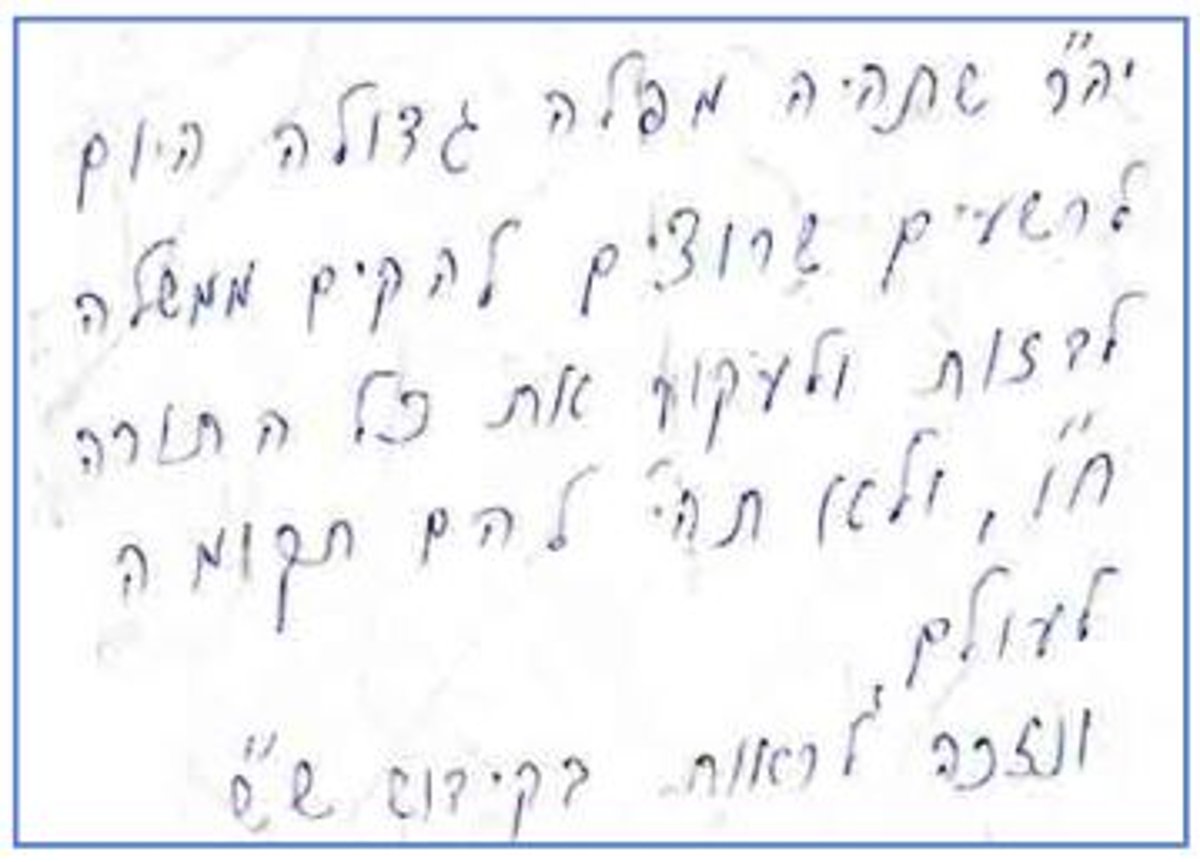 יה"ר שתהיה מפלה גדולה היום
לרשעים שרוצים להקים ממשלה
לבזות ולעקור את כל התורה
ח"ו, ולא תהי' להם תקומה
לעולם,
ונזכה לראות בקידוש ש"ש